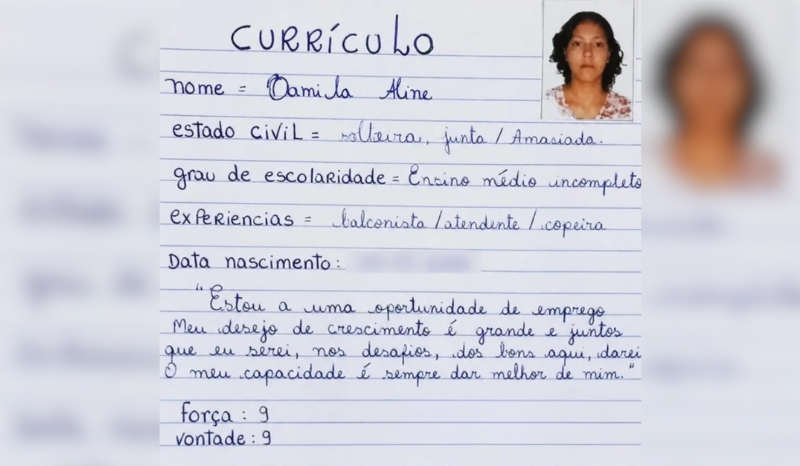 CURRÍCULO
nome = Damila Aline
estado civil = solteira, junta / Amasiada.
grau de escolaridade = Ensino médio incompleto
experiencias = balconista / atendente / copeira
Data nascimento:
"Estou a uma oportunidade de emprego
Meu desejo de crescimento é grande e juntos
que eu serei, nos desafios, dos bons aqui, darei
O meu capacidade é sempre dar melhor de mim."
força: 9
vontade: 9